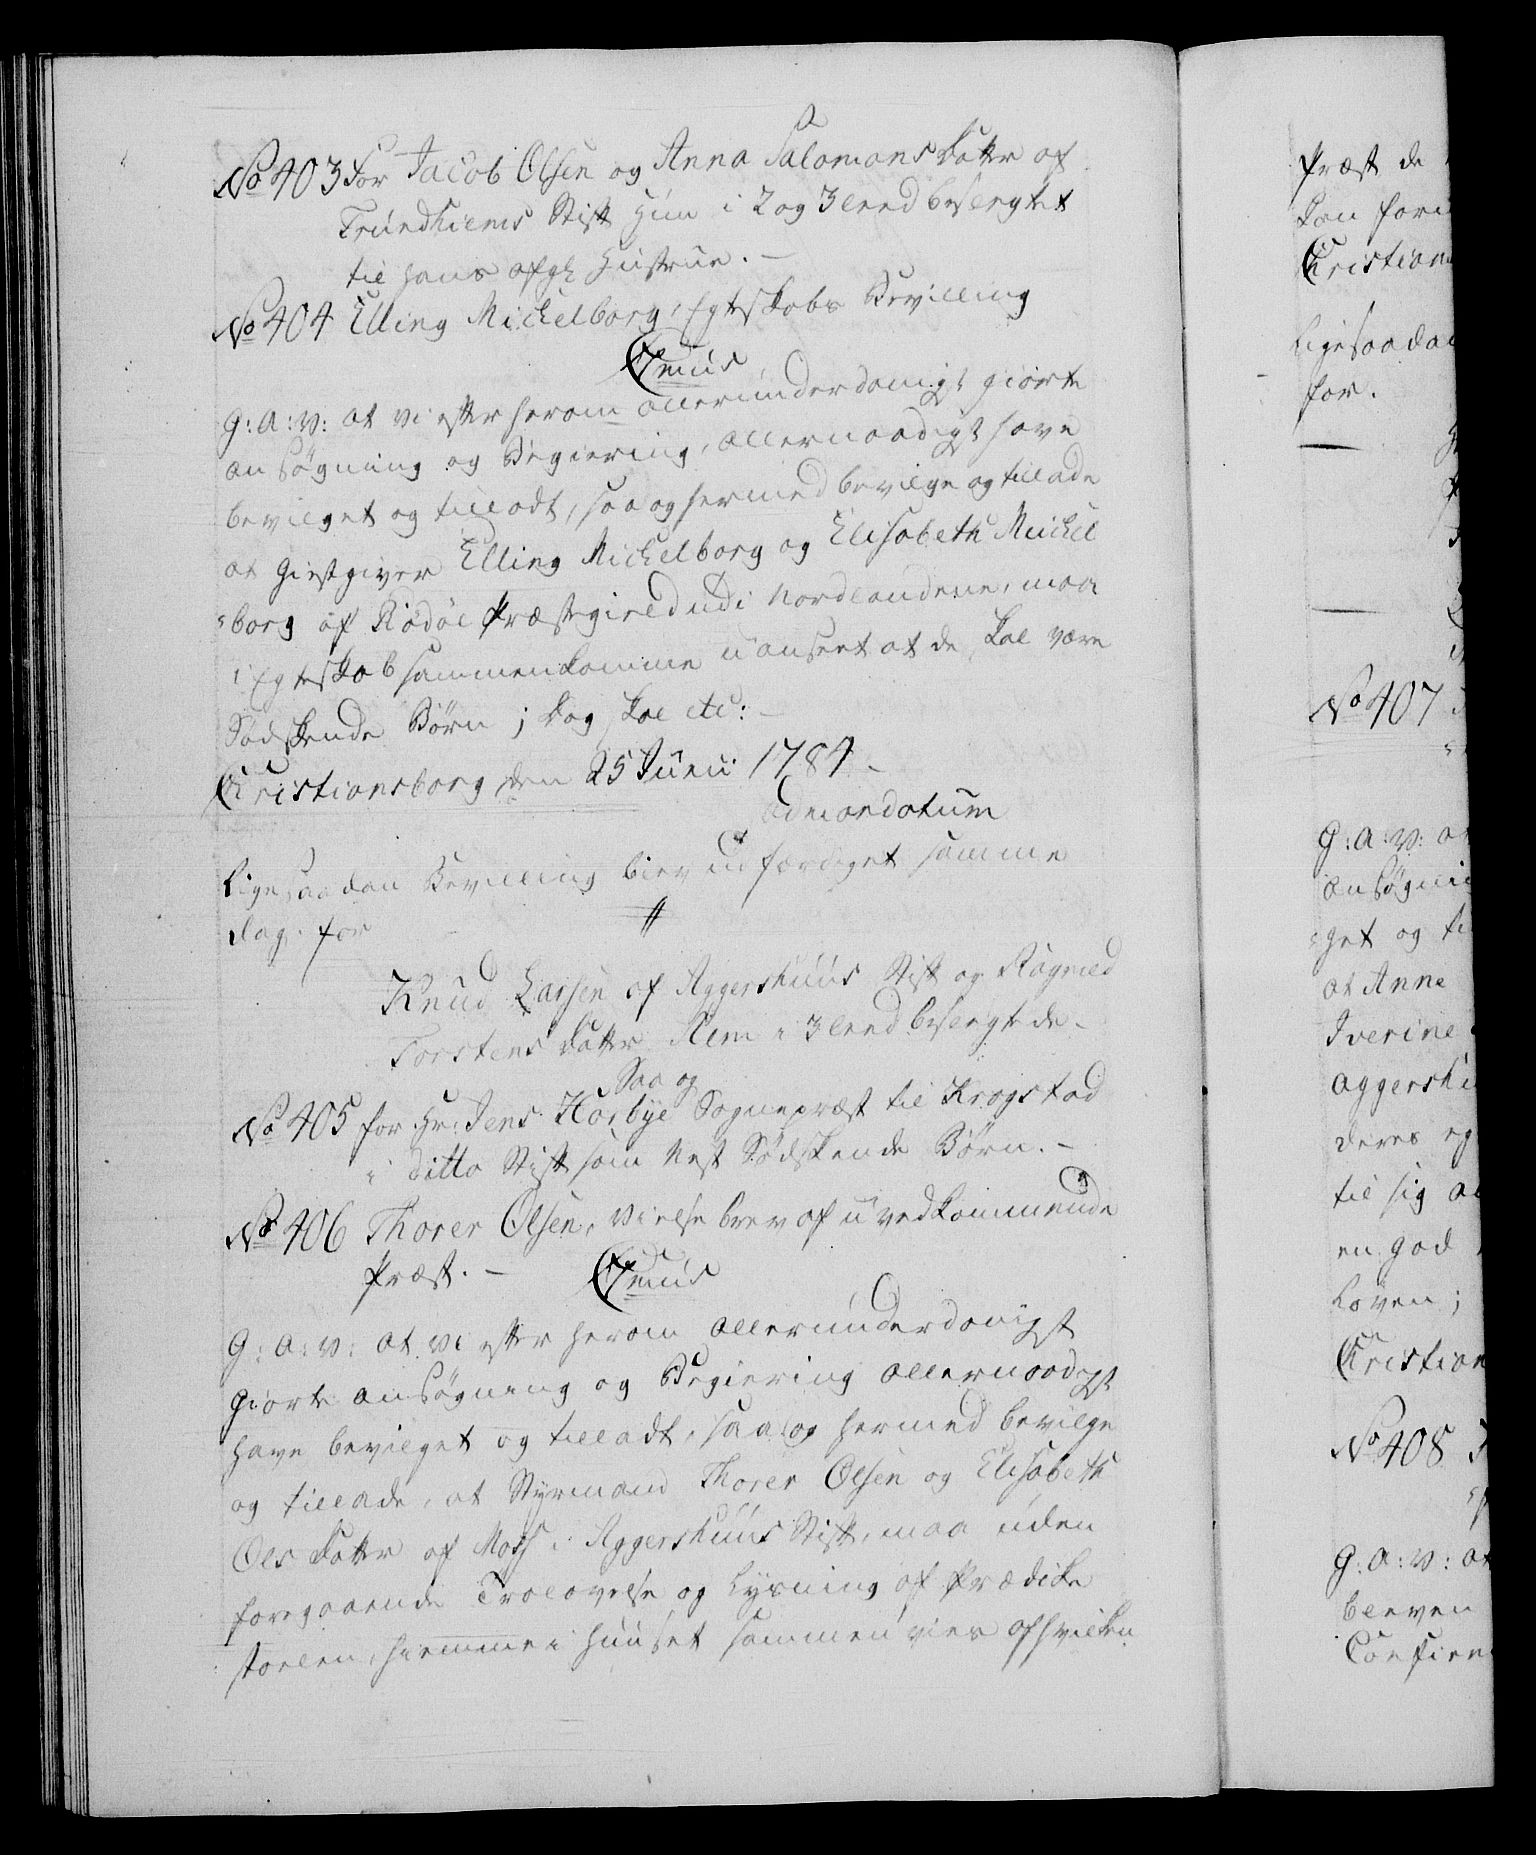 No 403 For Jacob Olsen og Anna Salomons datter af
Trundhiems Stift hun i 2 og 3 leed beslegtet
til hans afg: Hustrue. —
No 404 Elling Mickelborg, Egteskabs Bevilling
C7mus
G: A: v: at vi efter herom allerunderdanigst giorte
ansøgning og Begiering, allernaadigst have
bevilget og tilladt, saa og hermed bevilge og tillade
at Giestgiver Elling Mickelborg og Elisabeth Mickel
borg af Rødøe Præstegield udi Nordlandene, maae
i Egteskab sammenkomme uanseet at de skal være
Sødskende Børn; dog skal etc: —
Christiansborg den 25 Junii 1784. —
ad mandatum
Ligesaadan Bevilling blev udfærdiget samme
dag. for
Knud Larsen af Aggershuus Stift og Ragnild
Torstens datter Nem i 3 leed beslegtede. —
Saa og
No 405 for Hr: Jens Korbye Sognepræst til Krogstad
i ditto Stift som Nest Sødskende Børn. —
No 406 Thorer Olsen, Vielsebrev af uvedkommende
Præst. — C7mus
G: A: v: at vi efter herom allerunderdanigst
giorte ansøgning og Begiering allernaadigst
have bevilget og tilladt, saa og hermed bevilge
og tillade, at Styrmand Thorer Olsen og Elisabeth
Ols datter af Moss i Aggershuus Stift, maa uden
foregaaende Trolovelse og Lysning af Prædike
stolen, hiemme i Huuset sammenvies af hvilken
Præst de
kan form
Christian
Ligesaadan
for.
No 407
G: A: v: at
ansøgni
get og ti
at Anne
Iverine
Aggershu
deres eg
til sig a
en god
Loven;
Christian
No 408
G: A: v: at
bleven
Confirm